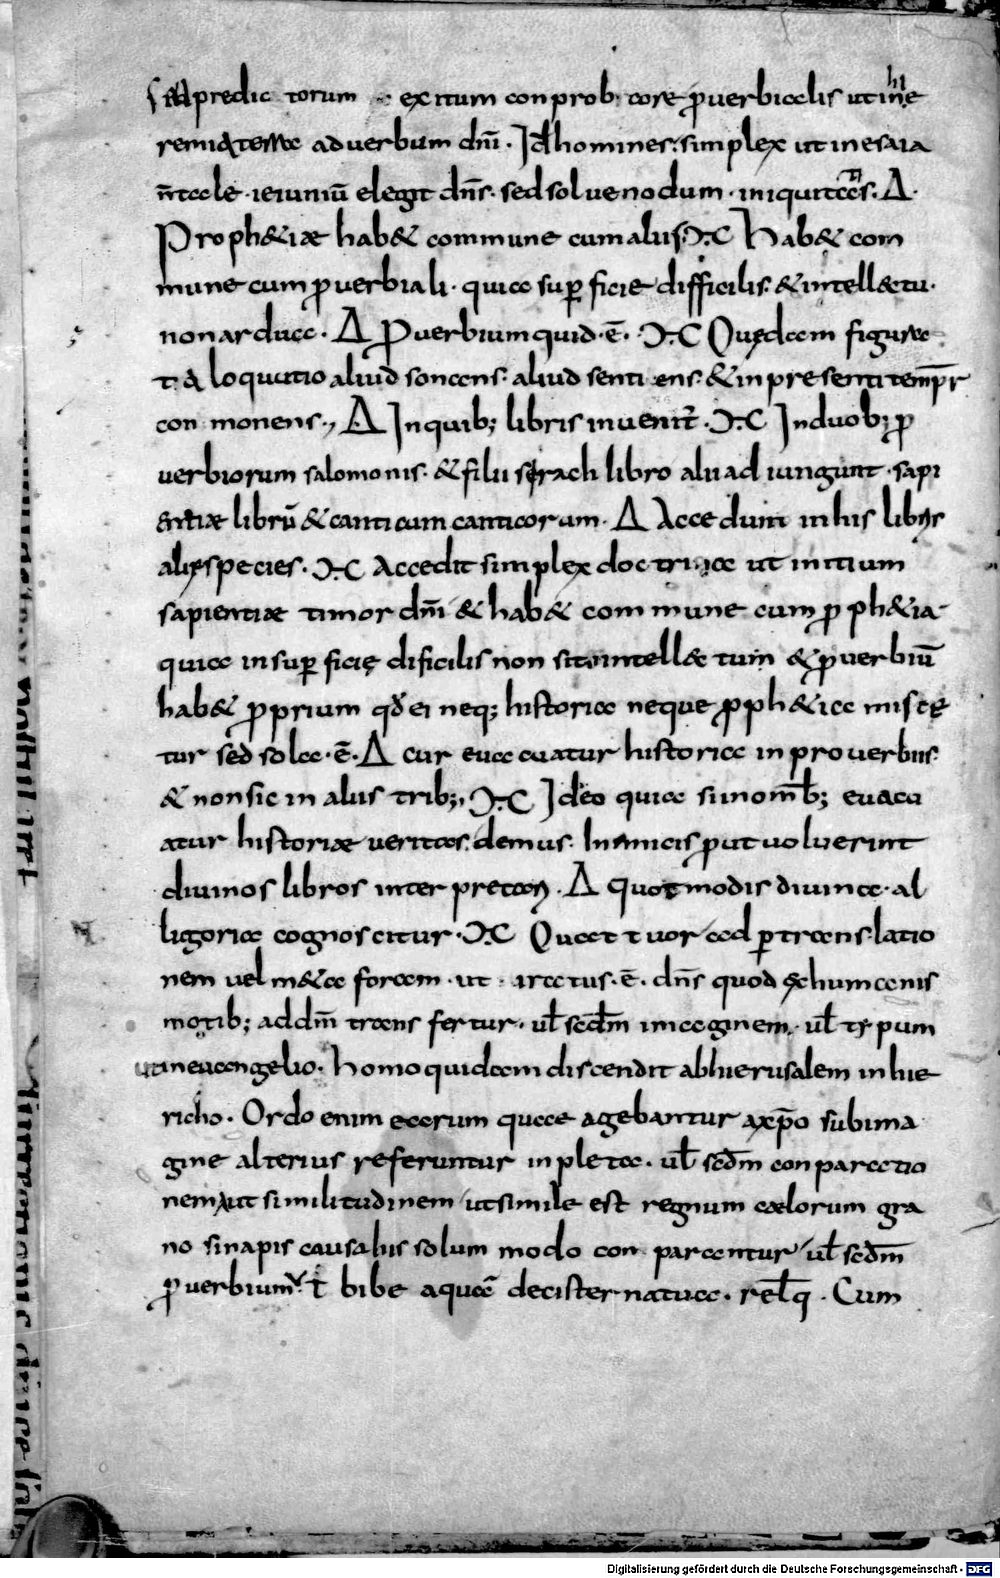 sed predic torum exitum conprob core ꝓverbialis ut inhie
remia attesse ad verbum dnī . Id homines: simplex ut in esaia
n̄ tale · ieiuniū elegit dn̄s· sed solve nodum · iniquitatis. Δ·
Proph&iæ hab& commune cum aliis: ꟾC Hab& com
mune cum ꝓverbiali · quia suꝑficie difficilis· & intell&tu·
non ardua · Δ Ꝓverbium quid · ē · ꟾC Quędam figura
t̄ alia loquutio aliud sonans· aliud sentiens· & in presenti temp̄r
con monens ., Δ In quib; libris invenit̄ . ꟾC In duob; ꝓ
verbiorum salomonis· & filii sirach libro alii ad iungunt · sapi
entiæ librū & canticum canticorum· Δ Accedunt in his libris
alię species · ꟾC Accedit simplex doctrina ut initium
sapientiæ timor dnī & hab& commune cum ꝓph&ia·
quia in suꝑficię dificilis non sit in intellectum & ꝓverbiū
hab& ꝓprium qđ ei neq; historia neque ꝓph&ia misce
tur sed sola · ē · Δ Cur evacuatur historia in proverbiis·
& non sic in aliis trib;, ꟾC Ideo quia si in omīb; evacu
atur historiæ veritas· demus· Inimicis ꝓut voluerint
divinos libros interpretari . Δ Quot modis divina · al
ligoria cognoscitur · ꟾC Quattuor ad ꝑ translatio
nem vel m&aforam · ut · iratus · ē · dn̄s quod ex humanis
motib; ad dm̄ transfertur · ul̄ scdm̄ imaginem · ul̄ typum
ut in evangelio · Homo quidam discendit ab hierusalem in hie
richo · Ordo enim earum quæ agebantur a xp̄o sub ima
gine alterius referuntur inpleta · ul̄ scdm̄ conparatio
nem aut similitudinem ut simile est regnum cælorum gra
no sinapis causa his solum modo conparantur ul̄ scdm̄
ꝓverbium· ut bibe aquā de cisterna tua · rel̄q · Cum
Digitalisierung gefördert durch die Deutsche Forschungsgemeinschaft - DFG